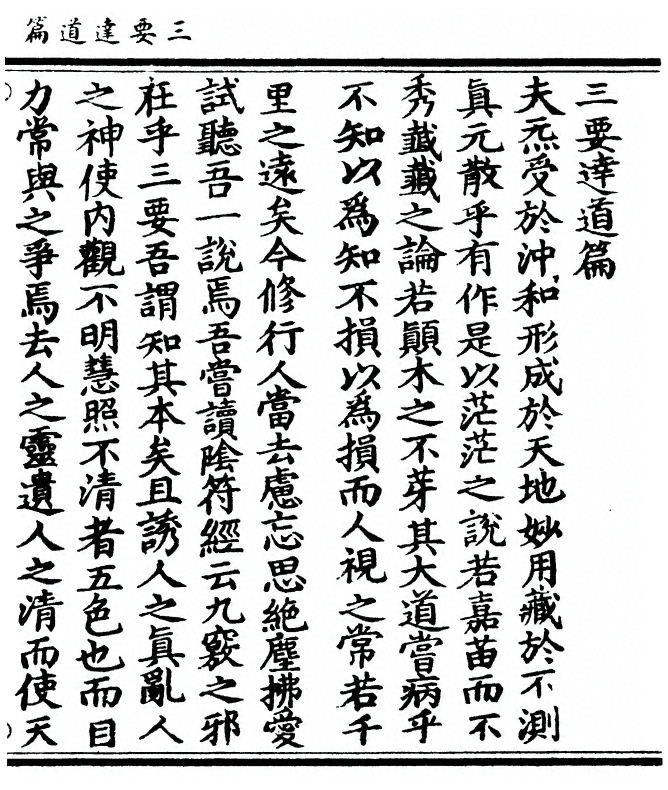 三要達道篇
三要達道篇
夫炁受於沖和形成於天地妙用藏於不測
眞元散乎有作是以茫茫之說若嘉苗而不
秀虀虀之論若顚木之不芽其大道嘗病乎
不知以爲知不損以爲損而人視之常若千
里之遠矣今修行人當去慮忘思絕塵拂愛
試聽吾一說焉吾嘗讀陰符經云九竅之邪
在乎三要吾謂知其本矣且誘人之眞亂人
之神使內觀不明慧照不清者五色也而目
力常與之爭焉去人之靈遺人之清而使天